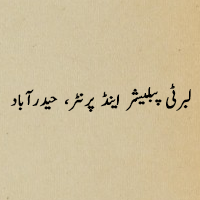 لبرٹی پبلیشر اینڈ پرنٹر، حیدرآباد